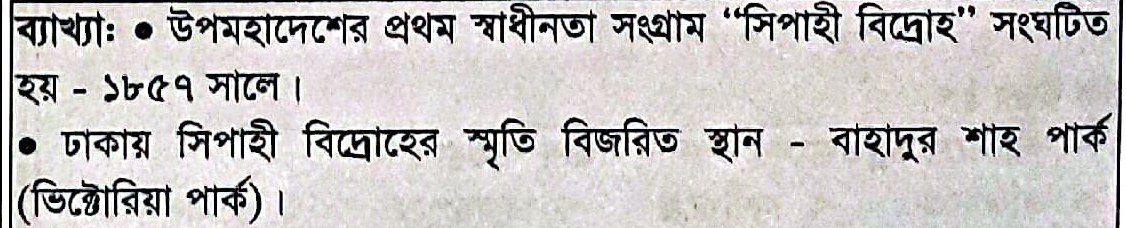 ব্যাখ্যা: ● উপমহাদেশের প্রথম স্বাধীনতা সংগ্রাম “সিপাহী বিদ্রোহ” সংঘটিত
হয় - ১৮৫৭ সালে।
● ঢাকায় সিপাহী বিদ্রোহের স্মৃতি বিজরিত স্থান - বাহাদুর শাহ পার্ক
(ভিক্টোরিয়া পার্ক)।